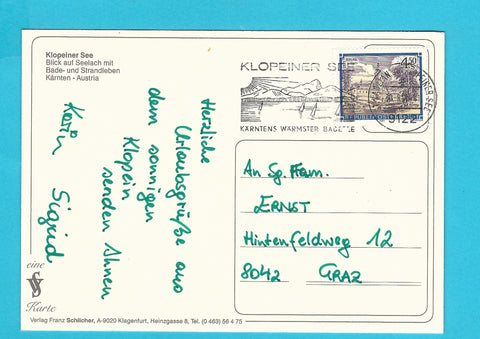 Klopeiner See
Blick auf Seelach mit
Bade- und Strandleben
Kärnten - Austria
Herzliche
Urlaubsgrüße aus
dem sonnigen
Klopein
senden Ihnen
Karin Sigrid
KLOPEINER SEE
KÄRNTENS WÄRMSTER BADESEE
4.50
REPUBLIK ÖSTERREICH
9122
An Sg. Fam.
ERNST
Hintenfeldweg 12
8042 GRAZ
eine
Karte
Verlag Franz Schlicher, A-9020 Klagenfurt, Heinzgasse 8, Tel. (0 463) 56 4 75